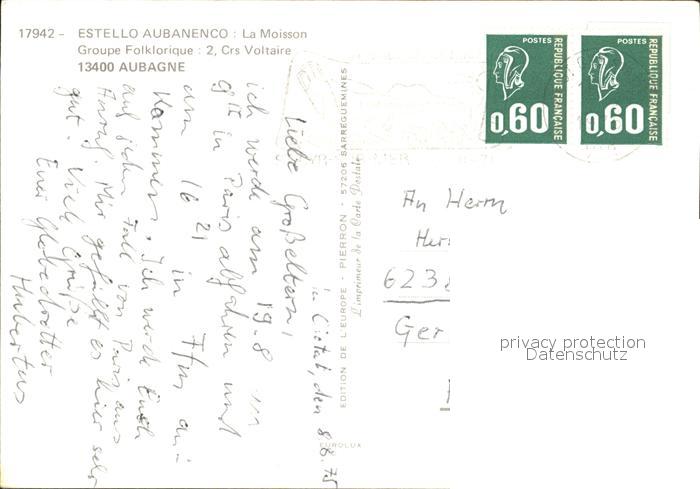 17942 - ESTELLO AUBANENCO : La Moisson
Groupe Folklorique : 2, Crs Voltaire
13400 AUBAGNE
La Ciotat, den 8.8.75
Liebe Großeltern,
ich werde am 19.8 um
9 in Paris abfahren und
um 16 21 in Ffm an-
kommen. Ich werde Euch
auf jeden Fall von Paris aus
Mir gefällt es hier sehr
gut. Viele Grüße
Euer Globetrotter
Hubertus
EDITION DE L'EUROPE - PIERRON - 57206 SARREGUEMINES
L'imprimeur de la Carte Postale
EUROLUX
POSTES
REPUBLIQUE FRANÇAISE
0,60
POSTES
REPUBLIQUE FRANÇAISE
0,60
An Herrn
Her
623
Ger
privacy protection
Datenschutz